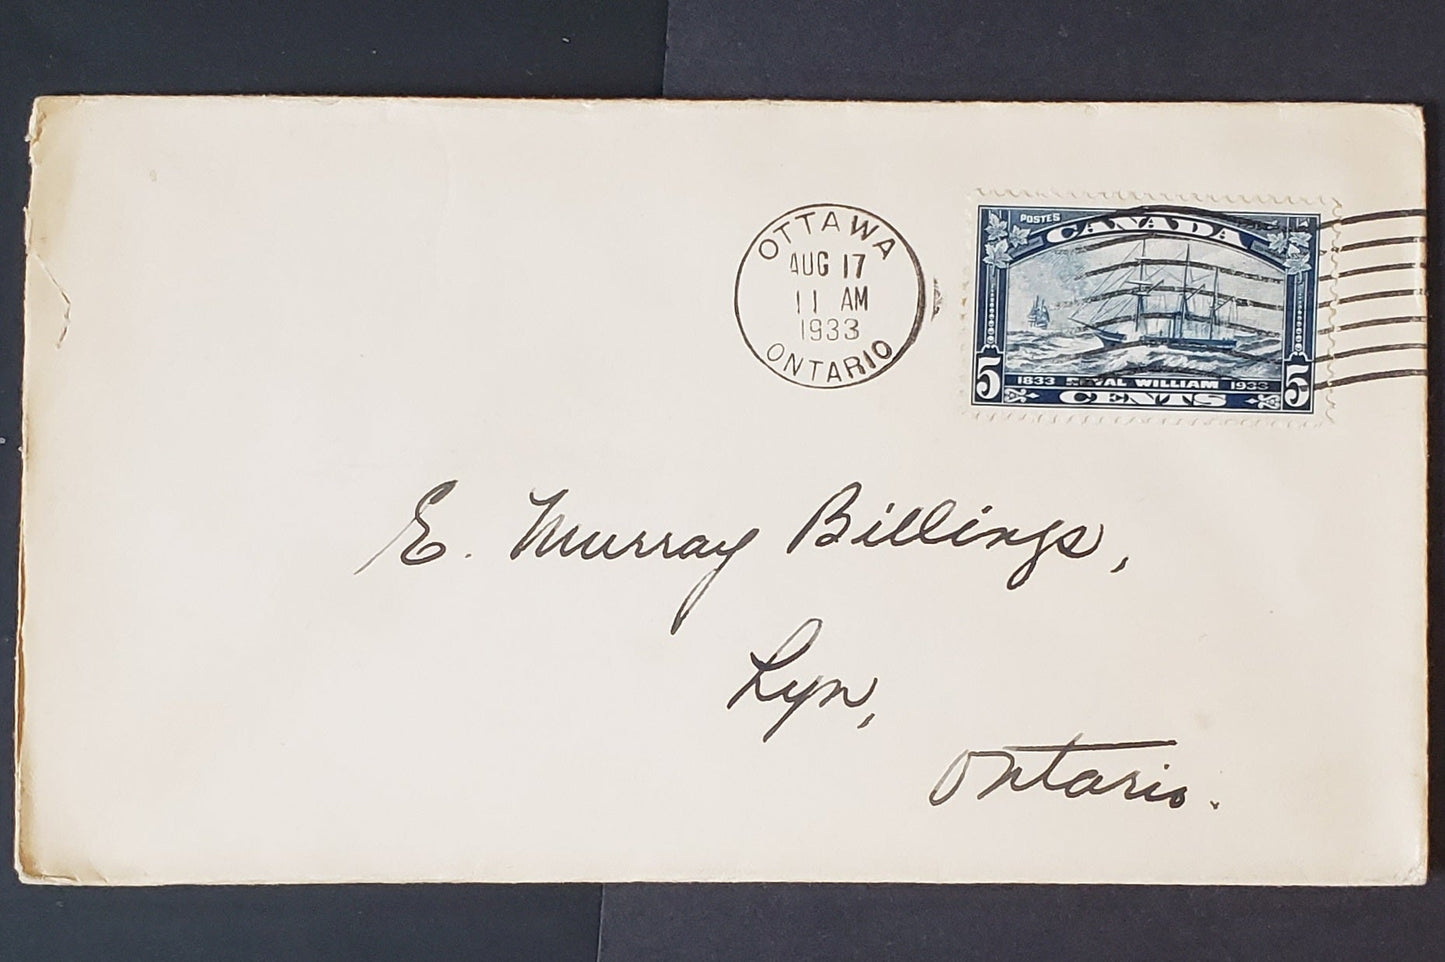 OTTAWA
AUG 17
11 AM
1933
ONTARIO
POSTES
CANADA
5 1833 ROYAL WILLIAM 1933 5
CENTS
E. Murray Billings,
Lyn,
Ontario.